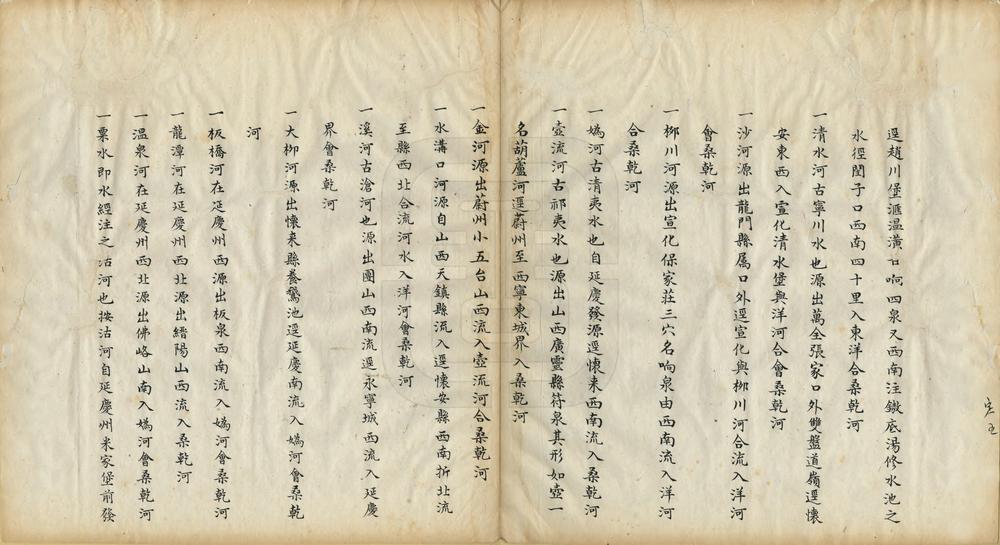 逕趙川堡滙溫潢 响四泉又西南注鏾底湯修水池之
水徑閆子口西南四十里入東洋合桑乾河
一清水河古寧川水也源出萬全張家口外雙盤道嶺逕懷
安東西入宣化清水堡與洋河合會桑乾河
一沙河源出龍門縣屬口外逕宣化與柳川河合流入洋河
會桑乾河
一柳川河源出宣化保家莊三穴名响泉由西南流入洋河
合桑乾河
一媯河古清夷水也自延慶發源逕懷来西南流入桑乾河
一壺流河古祁夷水也源出山西廣靈縣符泉其形如壺一
名葫蘆河逕蔚州至西寧東城界入桑乾河
一金河源出蔚州小五台山西流入壺流河合桑乾河
一水溝口河源自山西天鎮縣流入逕懷安縣西南折北流
至縣西北合流河水入洋河會桑乾河
一溪河古滄河也源出團山西南流逕永寧城西流入延慶
界會桑乾河
一大柳河源出懷来縣養鵞池逕延慶南流入媯河會桑乾
河
一板橋河在延慶州西源出板泉西南流入媯河會桑乾河
一龍潭河在延慶州西北源出縉陽山西流入桑乾河
一溫泉河在延慶州西北源出佛峪山南入媯河會桑乾河
一栗水即水經注之沽河也按沽河自延慶州米家堡前發